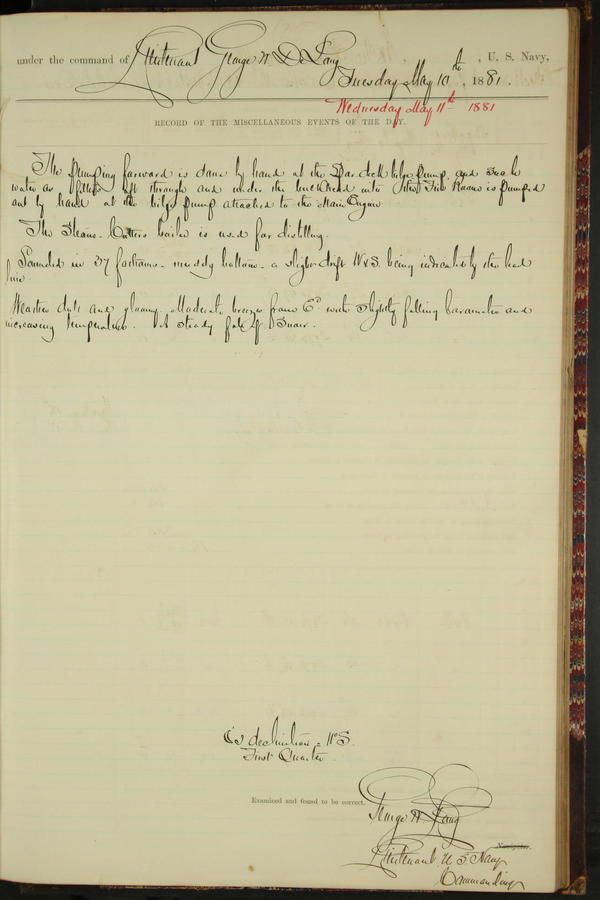 under the command of Lieutenant George W. De Long , U. S. Navy,
Tuesday May 10th , 1881.
Wednesday May 11th 1881
RECORD OF THE MISCELLANEOUS EVENTS OF THE DAY.
The pumping forward is done by hand at the Spar deck bilge pump, and such
water as filters aft through and under the bulkhead into the Fire Room is pumped
out by hand at the bilge pump attached to the Main Engine.
The Steam-Cutters boiler is used for distilling.
Sounded in 37 fathoms - muddy bottom - a slight drift W & S. being indicated by the lead
line.
Weather dull and gloomy. Moderate breezes from Ed with slightly falling barometer and
increasing temperature. A steady fall of snow.
declination = 11° S.
First Quarter.
Examined and found to be correct.
George W. De Long
Navigator.
Lieutenant U S Navy
Commanding